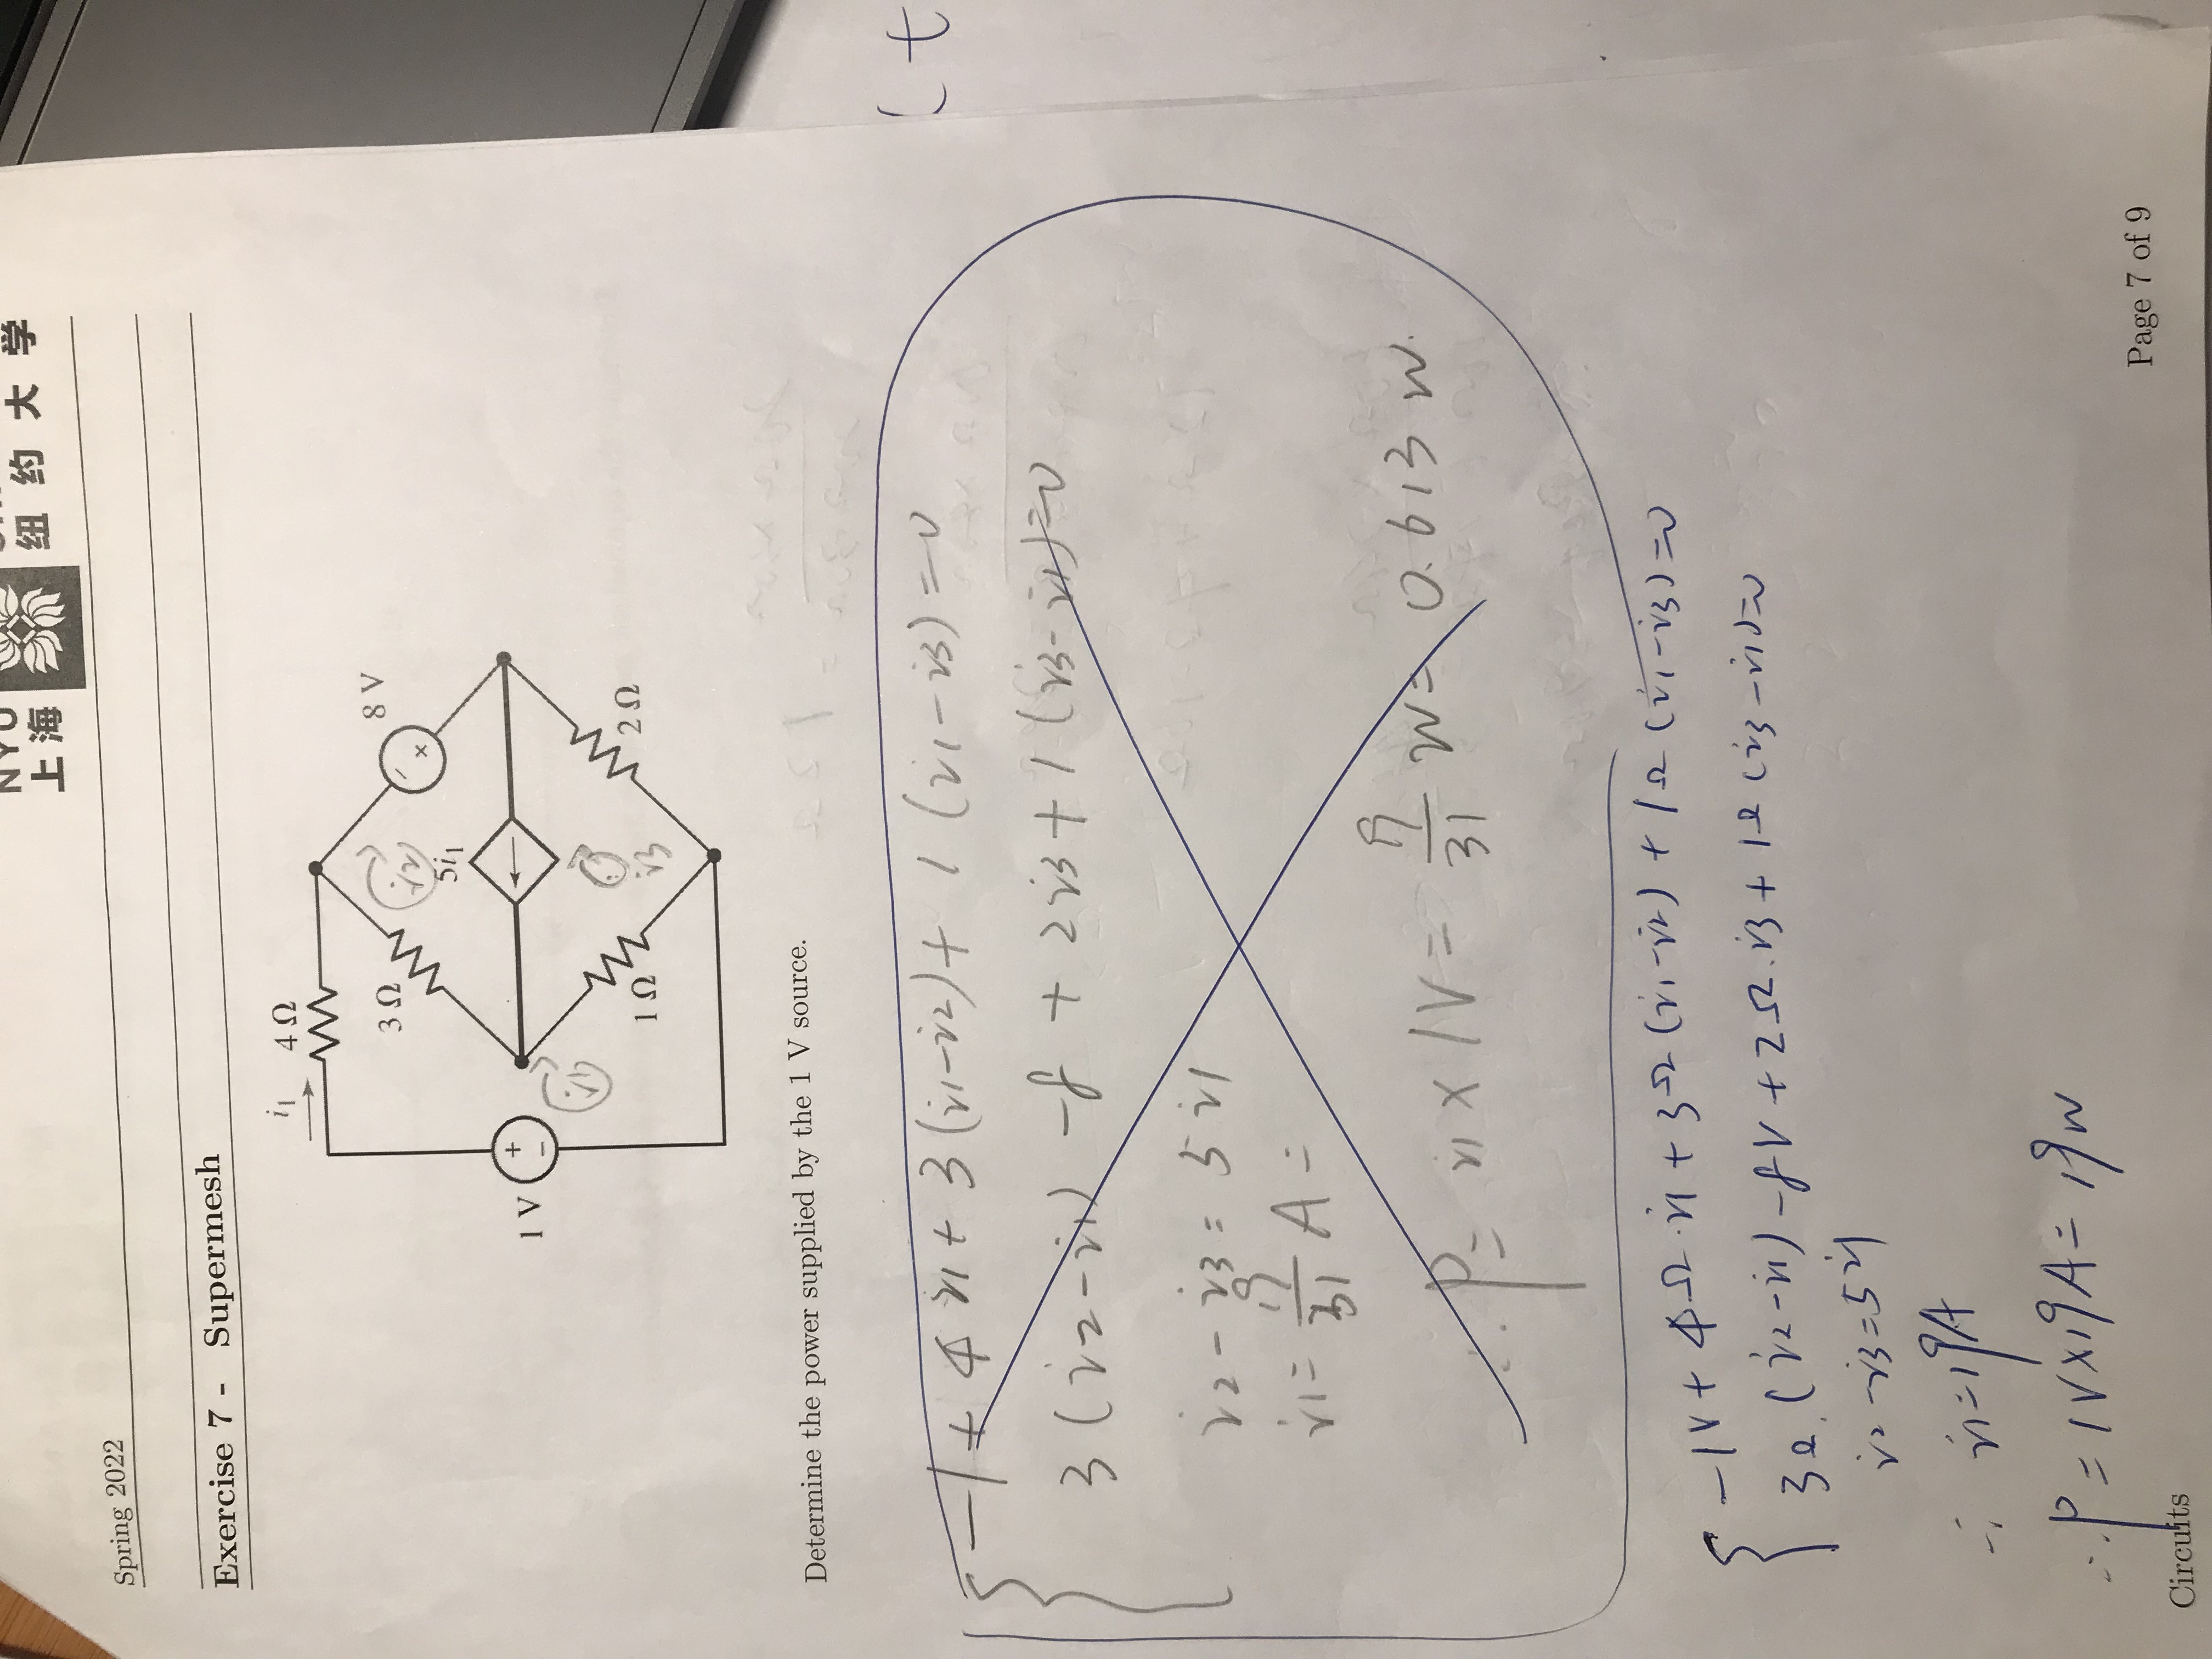 NYU
上海
纽约大学
Spring 2022
Exercise 7 - Supermesh
i₁ 4 Ω
3 Ω
i2
- +
8 V
5i₁
1 V
+
−
i1
1 Ω
i3
2 Ω
Determine the power supplied by the 1 V source.
-1 + 4 i1 + 3 (i1-i2) + 1 (i1-i3) = 0
3 (i2-i1) -8 + 2 i3 + 1 (i3-i1) = 0
i2 - i3 = 5 i1
i1 = 19/31 A =
∴ P = i1 × 1V = 19/31 W = 0.613 W.
-1V + 4Ω·i1 + 3Ω (i1-i2) + 1Ω (i1-i3) = 0
3Ω·(i2-i1) -8V + 2Ω·i3 + 1Ω (i3-i1) = 0
i2 - i3 = 5i1
∴ i1 = 19A
∴ P = 1V×19A = 19W
( t
Page 7 of 9
Circuits